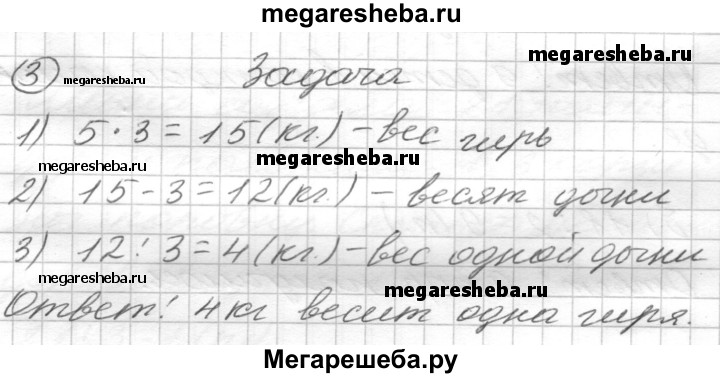 megaresheba.ru
③ megaresheba.ru Задача megaresheba.ru
1) 5 · 3 = 15 (кг.) - вес гирь
megaresheba.ru
2) 15 - 3 = 12 (кг.) - весят дыни
3) 12 : 3 = 4 (кг.) - вес одной дыни
megaresheba.ru
Ответ: 4 кг весит одна гиря.
megaresheba.ru
Мегарешеба.ру